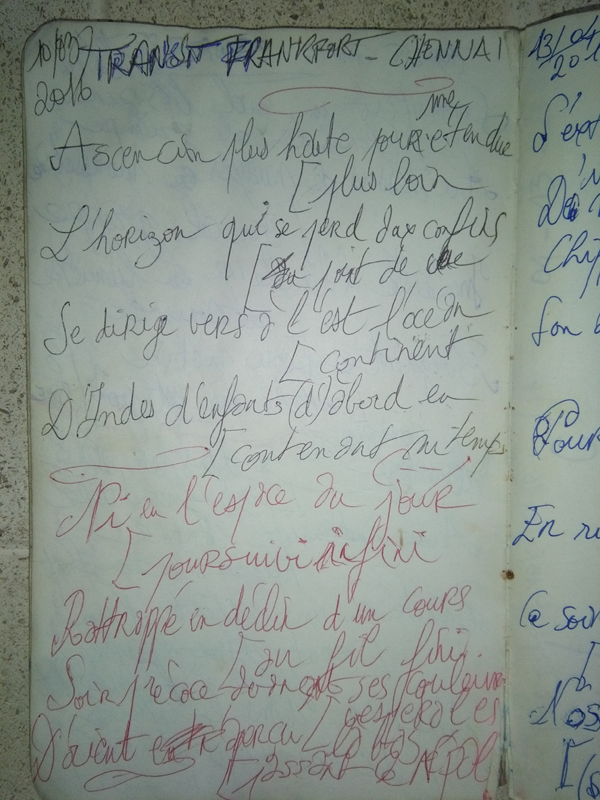 10/03/
2016
TRANSIT FRANKFORT - CHENNAI
Ascension plus haute pour
[plus loin
L'horizon qui se perd aux confins
[au point de vue
Se dirige vers à l'est l'océan
[continent
D'Indes d'enfants (d')abord en
[contenant ni temps
Ni en l'espace du jour
[poursuivi infini
Rattrappé en déclin d'un cours
[au fil fini.
Soir précoce donnant ses couleurs
[vespérales
D'orient aperçu là-bas
[passant Népal
13/04
201
S'ext
Chi
Son
Pour
En
Ce soir
Nos